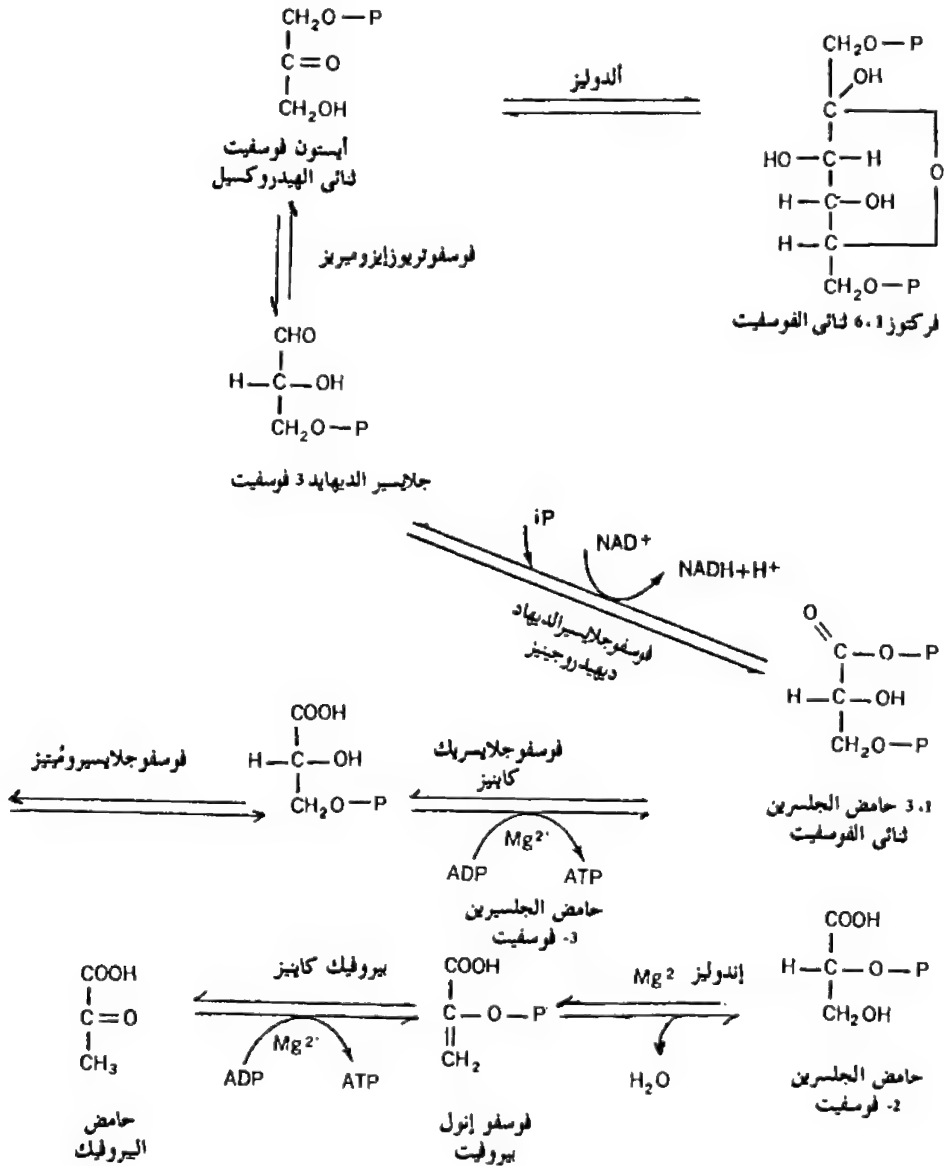 CH₂O—P
C=O
CH₂OH
أيستون فوسفيت
ثنائى الهيدروكسيل
ألدوليز
CH₂O—P
OH
C
HO—C—H
O
H—C—OH
H—C
CH₂O—P
فركتوز 6،1 ثنائى الفوسفيت
فوسفوتريوزإيزوميريز
CHO
H—C—OH
CH₂O—P
جلايسير الديهايد 3 فوسفيت
iP
NAD+
NADH+H+
فوسفوجلايسيرالديهاد
ديهيدروجينيز
O
C—O—P
H—C—OH
CH₂O—P
3،1 حامض الجلسرين
ثنائى الفوسفيت
فوسفوجلايسريك
كاينيز
Mg²⁺
ADP
ATP
COOH
H—C—OH
CH₂O—P
حامض الجلسيرين
3- فوسفيت
فوسفوجلايسيروميتيز
COOH
H—C—O—P
CH₂OH
حامض الجلسرين
2- فوسفيت
إندوليز
Mg²
H₂O
COOH
C—O—P
CH₂
فوسفو إنول
بيروفيت
بيروفيك كاينيز
Mg²⁺
ADP
ATP
COOH
C=O
CH₃
حامض
البيروفيك